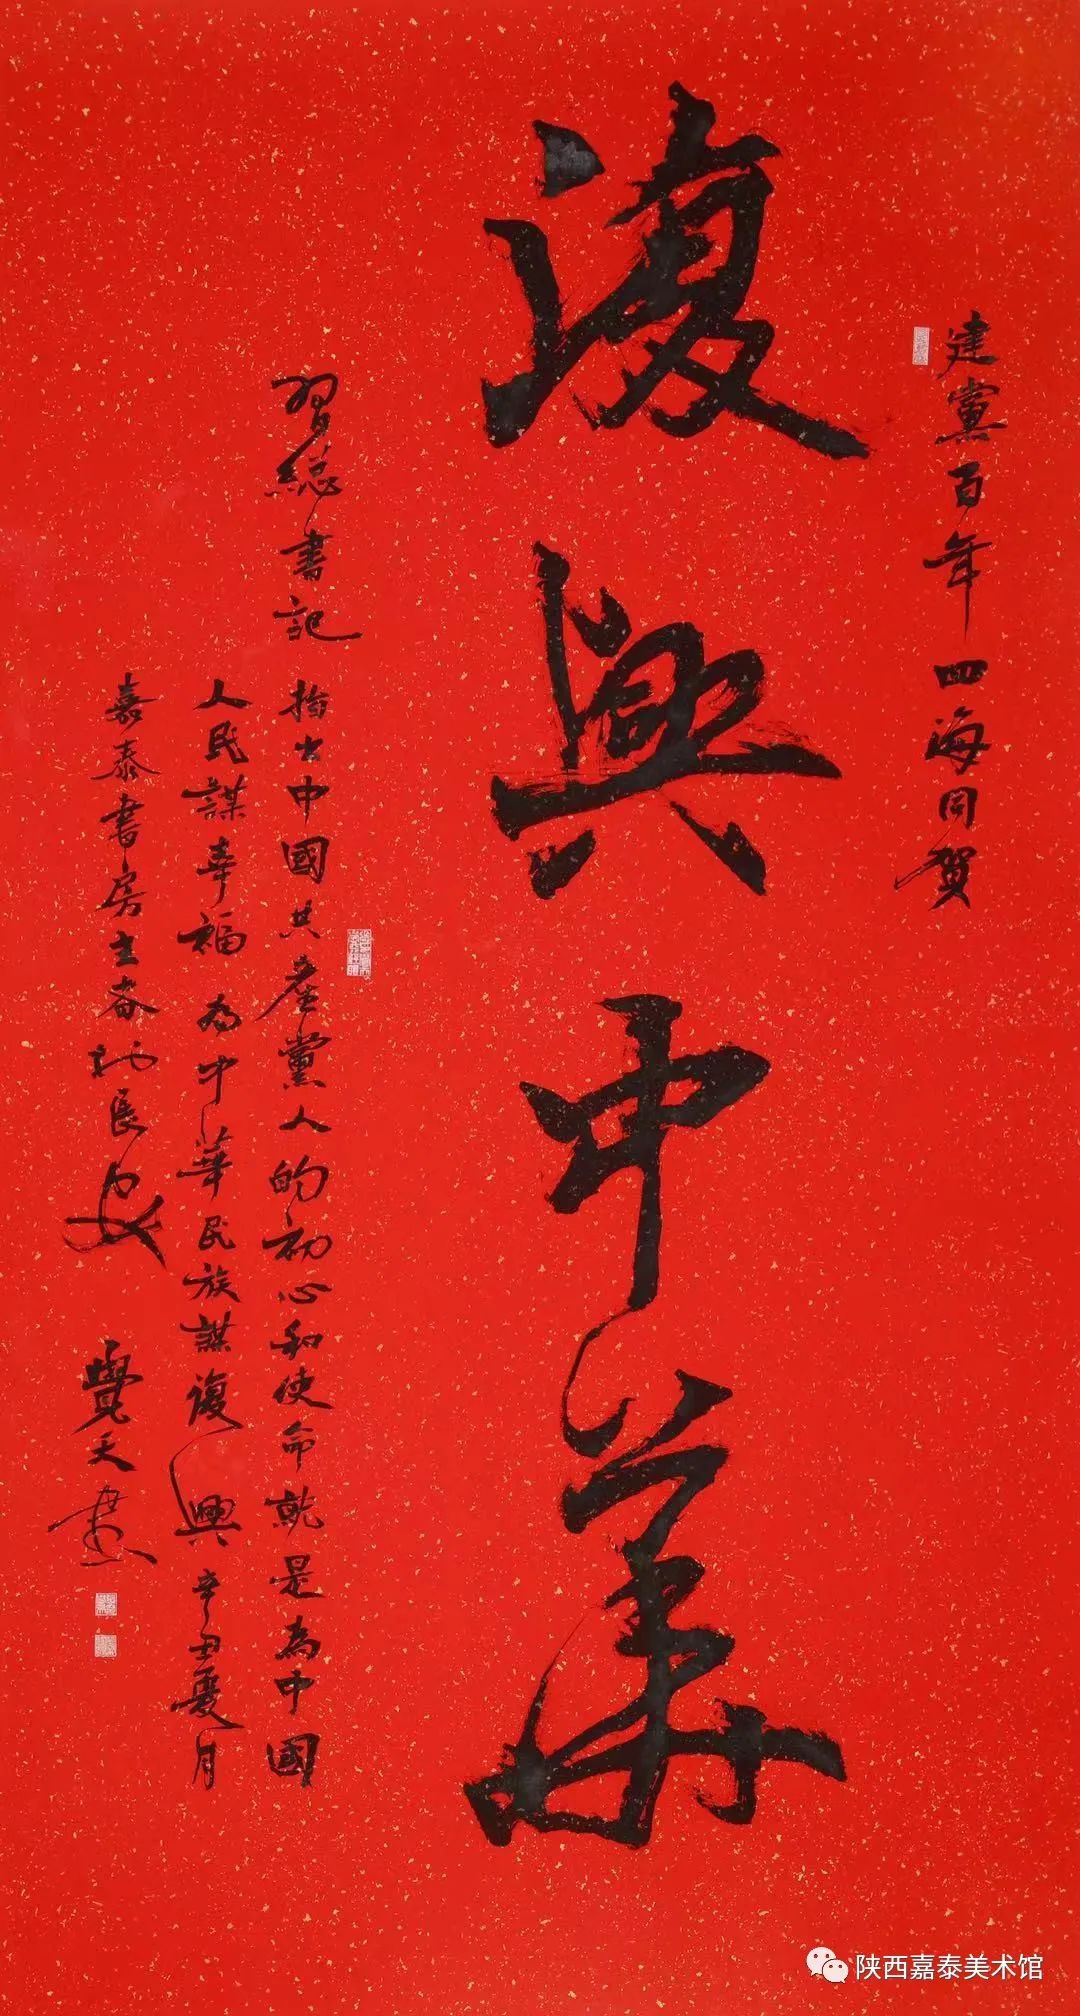 建黨百年四海同賀
復興中華
習總書記指出中國共產黨人的初心和使命就是為中國
人民謀幸福為中華民族謀復興辛丑夏月
嘉泰書房主春於長安覺天書
陕西嘉泰美术馆